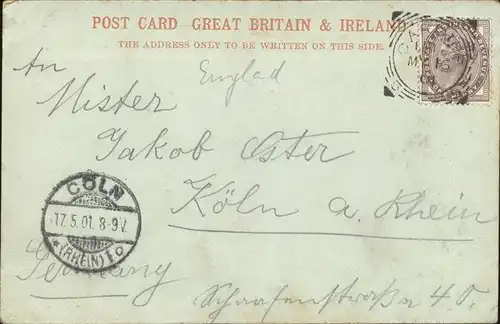 POST CARD GREAT BRITAIN & IRELAND
THE ADDRESS ONLY TO BE WRITTEN ON THIS SIDE.
An Englad
Mister
Jakob Oster
Köln a. Rhein
Germany
40.
CÖLN
17.5.01. 8-9V.
(RHEIN) 1